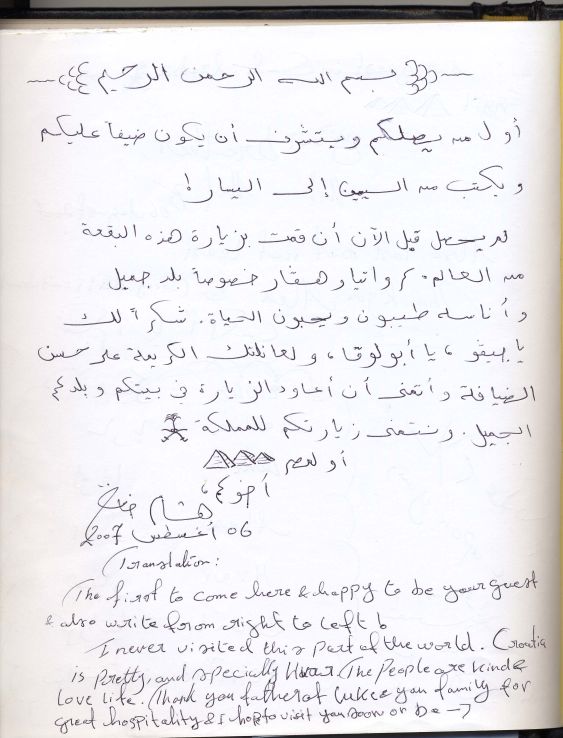 بسم الله الرحمن الرحيم
أول من يصلكم ويتشرف أن يكون ضيفاً عليكم
ويكتب من اليمين إلى اليسار!
لم يحصل قبل الآن أن قمت بزيارة هذه البقعة
من العالم. كرواتيا وهفار خصوصاً بلد جميل
وأناسه طيبون ويحبون الحياة. شكراً لك
يا أبو لوقا، ولعائلتك الكريمة على حسن
الضيافة وأتمنى أن أعاود الزيارة في بيتكم وبلدكم
الجميل. ونتمنى زيارتكم للمملكة
أو لمصر
أخوكم، هشام
06 أغسطس 2007
Translation:
The first to come here & happy to be your guest
& also write from right to left
I never visited this part of the world. Croatia
is pretty, and specially Hvar. The People are kind &
love life. Thank you father of Lukce you family for
great hospitality & I hop to visit you soon or be →